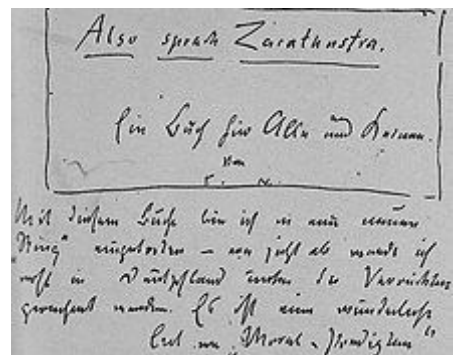 Also sprach Zarathustra.
Ein Buch für Alle und Keinen.
Von
Mit diesem Buche bin ich in einen neuen
„Ring“ eingetreten – von jetzt ab werde ich
wohl in Deutschland unter die Verrückten
gerechnet werden. Es ist eine wunderliche
Art von „Moral-Predigten“